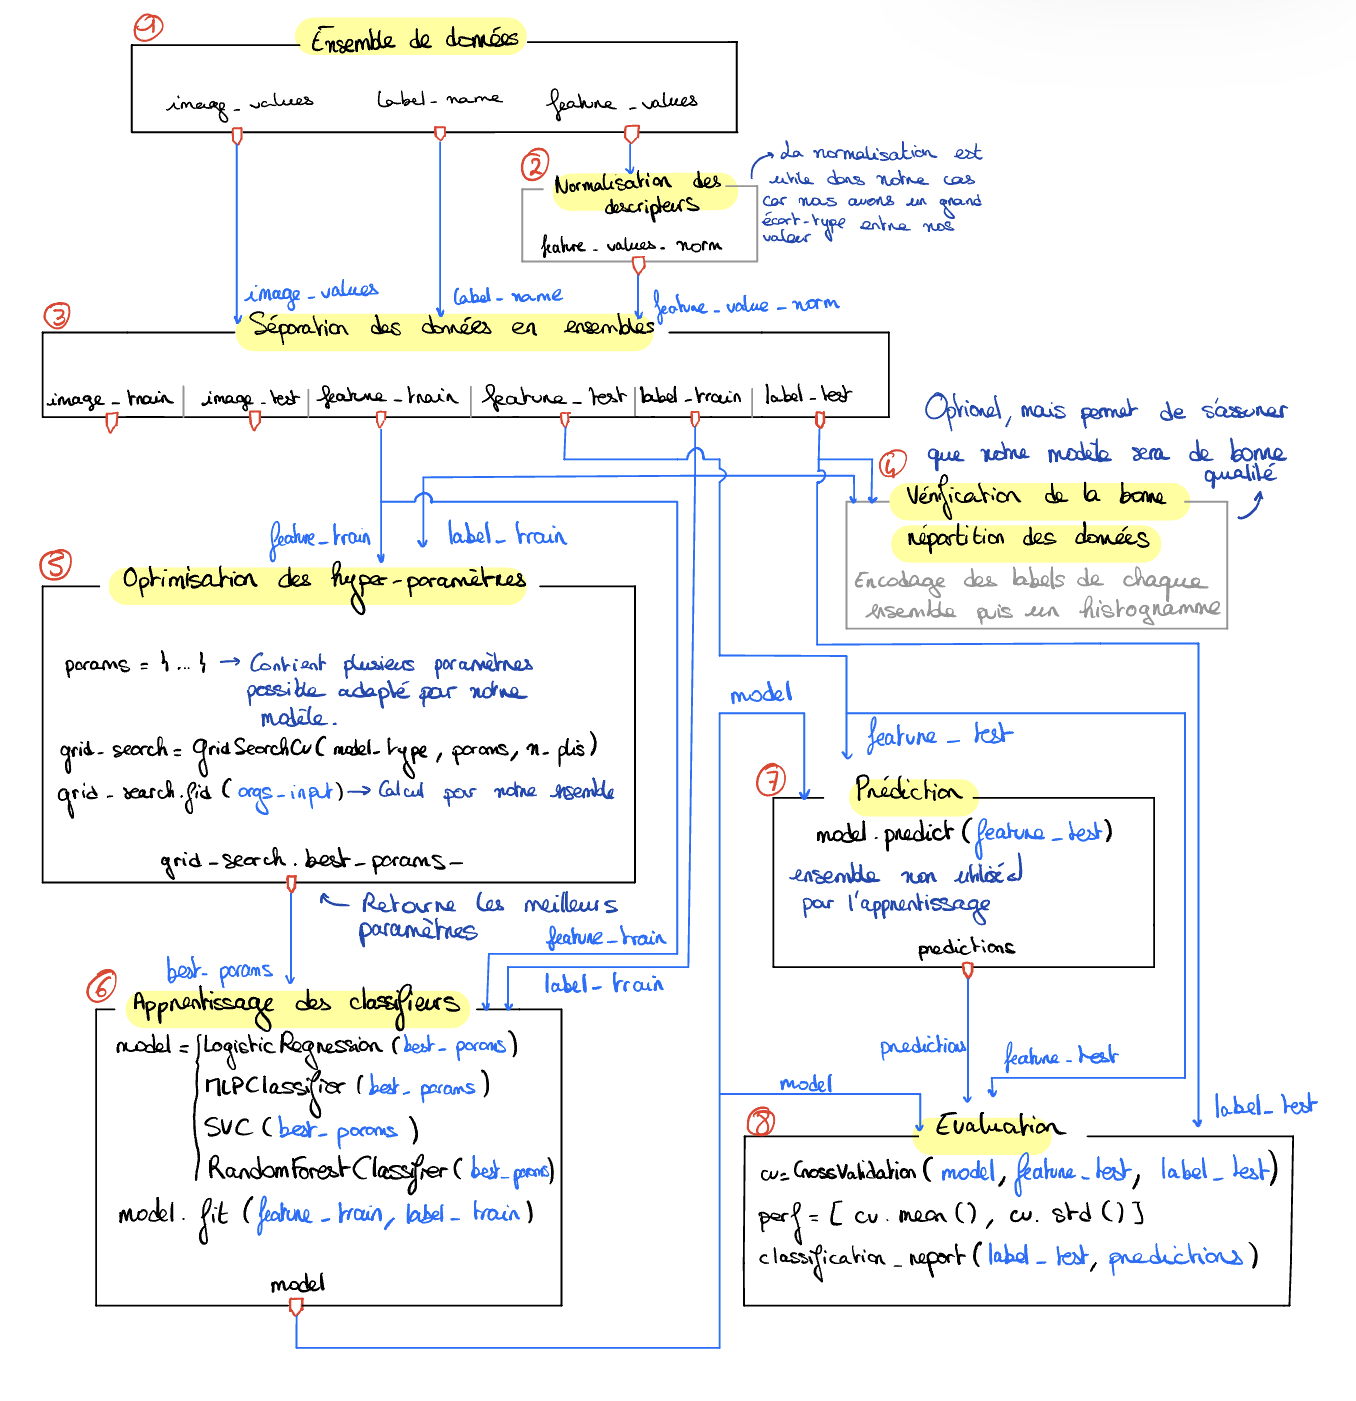 1
Ensemble de données
image_values label_name feature_values
2
Normalisation des
descripteurs
feature_values_norm
→ La normalisation est
utile dans notre cas
car nous avons un grand
écart-type entre nos
valeur
image_values
label_name
feature_value_norm
3
Séparation des données en ensembles
image_train | image_test | feature_train | feature_test | label_train | label_test
Optionel, mais permet de s'assurer
que notre modèle sera de bonne
qualité
4
Vérification de la bonne
répartition des données
Encodage des labels de chaque
ensemble puis un histogramme
feature_train
label_train
5
Optimisation des hyper-paramètres
params = { ... } → Contient plusieurs paramètres
possible adapté par notre
modèle.
grid_search = GridSearchCV( model_type, params, n_plis)
grid_search.fid (args_input) → Calcul par notre ensemble
grid_search.best_params_
← Retourne les meilleurs
paramètres
model
feature_test
7
Prédiction
model.predict(feature_test)
ensemble non utilisé
par l'apprentissage
predictions
feature_train
label_train
best_params
6
Apprentissage des classifieurs
model = { LogisticRegression (best_params)
MLPClassifier (best_params)
SVC (best_params)
RandomForestClassifier (best_params)
model.fit (feature_train, label_train)
model
predictions
feature_test
model
label_test
8
Evaluation
cv=CrossValidation( model, feature_test, label_test)
perf = [ cv.mean(), cv.std()]
classification_report (label_test, predictions)